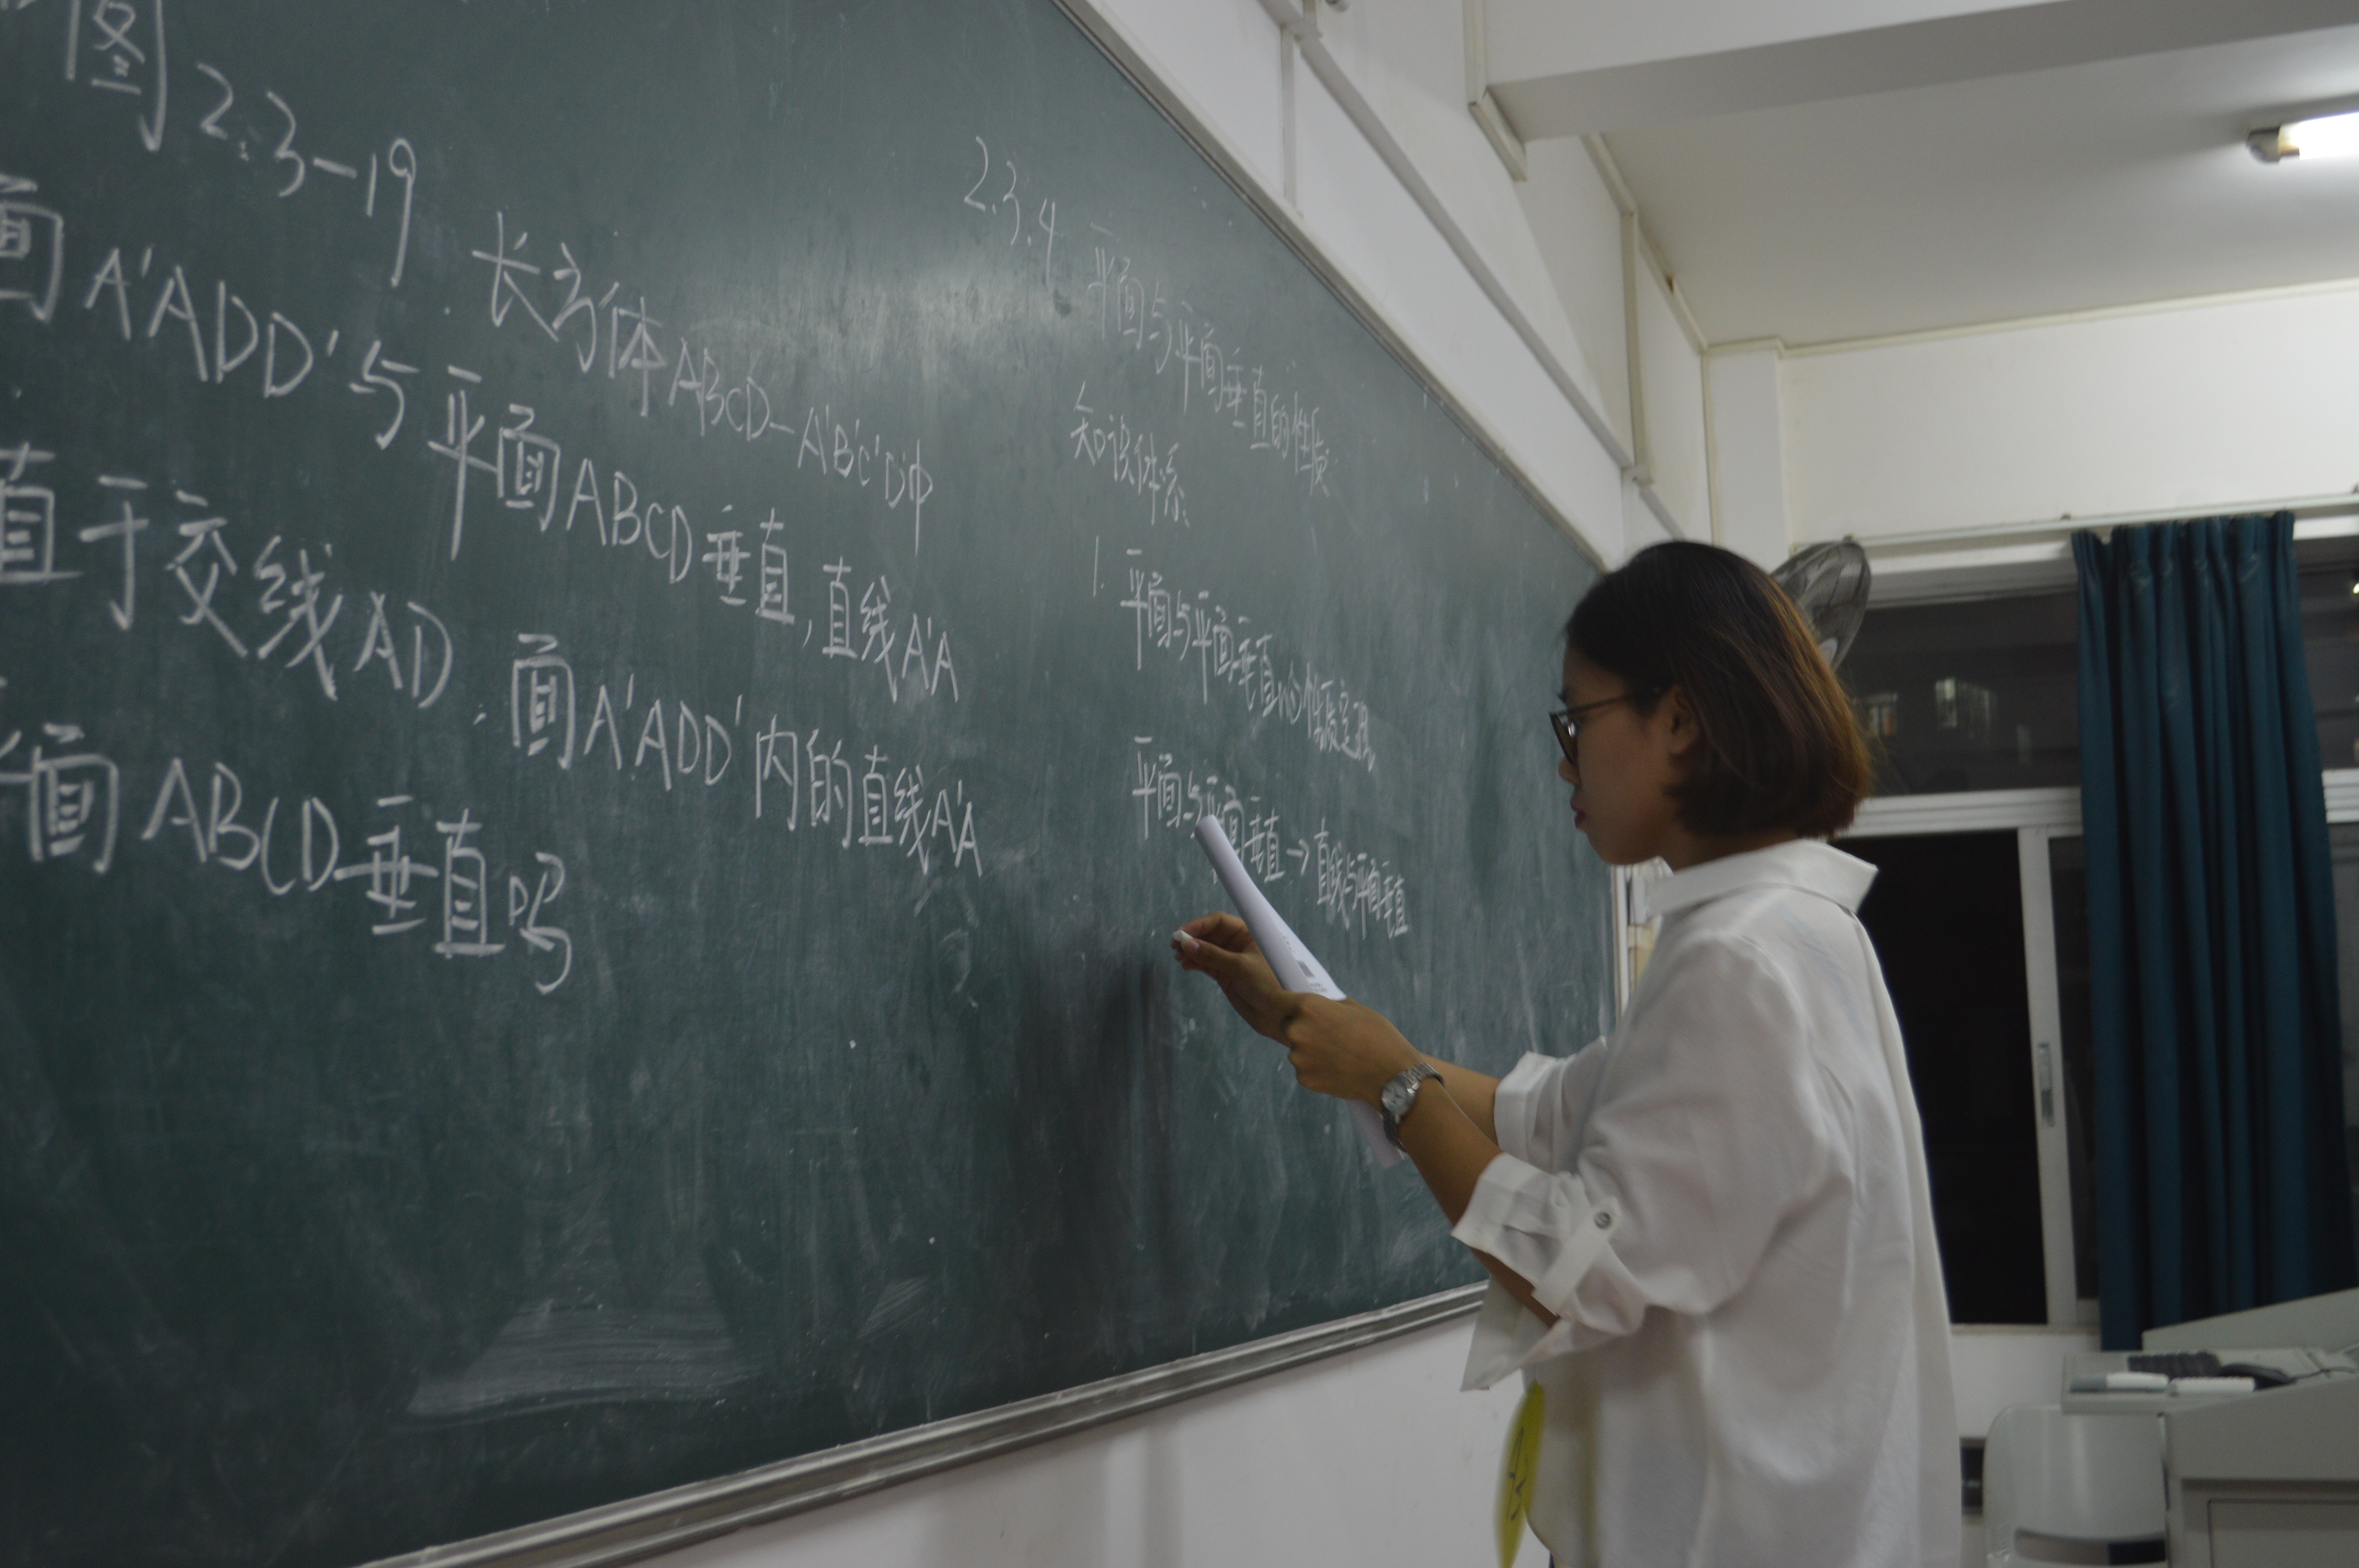 图2.3-19 长方体ABCD-A'B'C'D'中
面A'ADD'与平面ABCD垂直,直线A'A
直于交线AD.面A'ADD'内的直线A'A
平面ABCD垂直吗
2.3.4 平面与平面垂直的性质
知识体系
1. 平面与平面垂直的性质定理
平面与平面垂直→直线与平面垂直